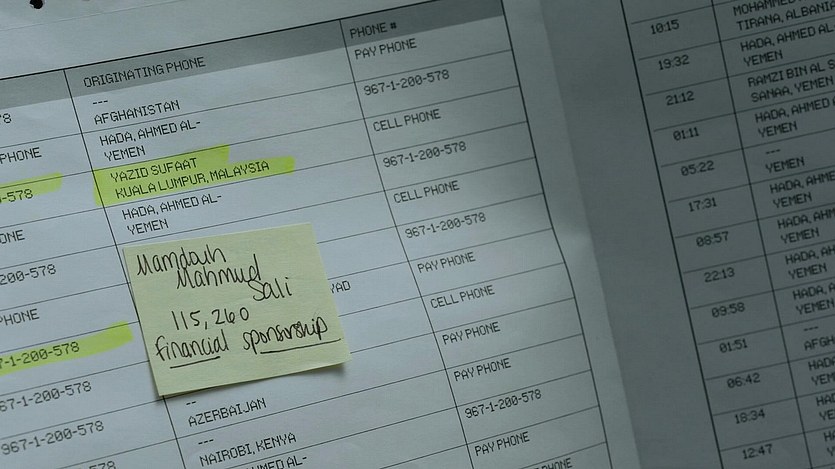 78
PHONE
0-578
ONE
00-578
PHONE
7-1-200-578
67-1-200-578
67-1-200-578
ORIGINATING PHONE
---
AFGHANISTAN
HADA, AHMED AL-
YEMEN
YAZID SUFAAT
KUALA LUMPUR, MALAYSIA
HADA, AHMED AL-
YEMEN
Mamdouh
Mahmud
Sali
115,260
financial sponsorship
YAD
--
AZERBAIJAN
---
NAIROBI, KENYA
AHMED AL-
PHONE #
PAY PHONE
967-1-200-578
CELL PHONE
967-1-200-578
CELL PHONE
967-1-200-578
PAY PHONE
CELL PHONE
PAY PHONE
PAY PHONE
967-1-200-578
PAY PHONE
10:15
19:32
21:12
01:11
05:22
17:31
08:57
22:13
09:58
01:51
06:42
18:34
12:47
MOHAMMED
TIRANA, ALBANIA
HADA, AHMED AL
YEMEN
RAMZI BIN AL S
SANAA, YEMEN
HADA, AHMED
YEMEN
---
YEMEN
HADA, AHME
YEMEN
HADA, AH
YEMEN
HADA, AH
YEMEN
HADA, A
YEMEN
---
AFGH
HAD
YEM
HAD
YE
HA